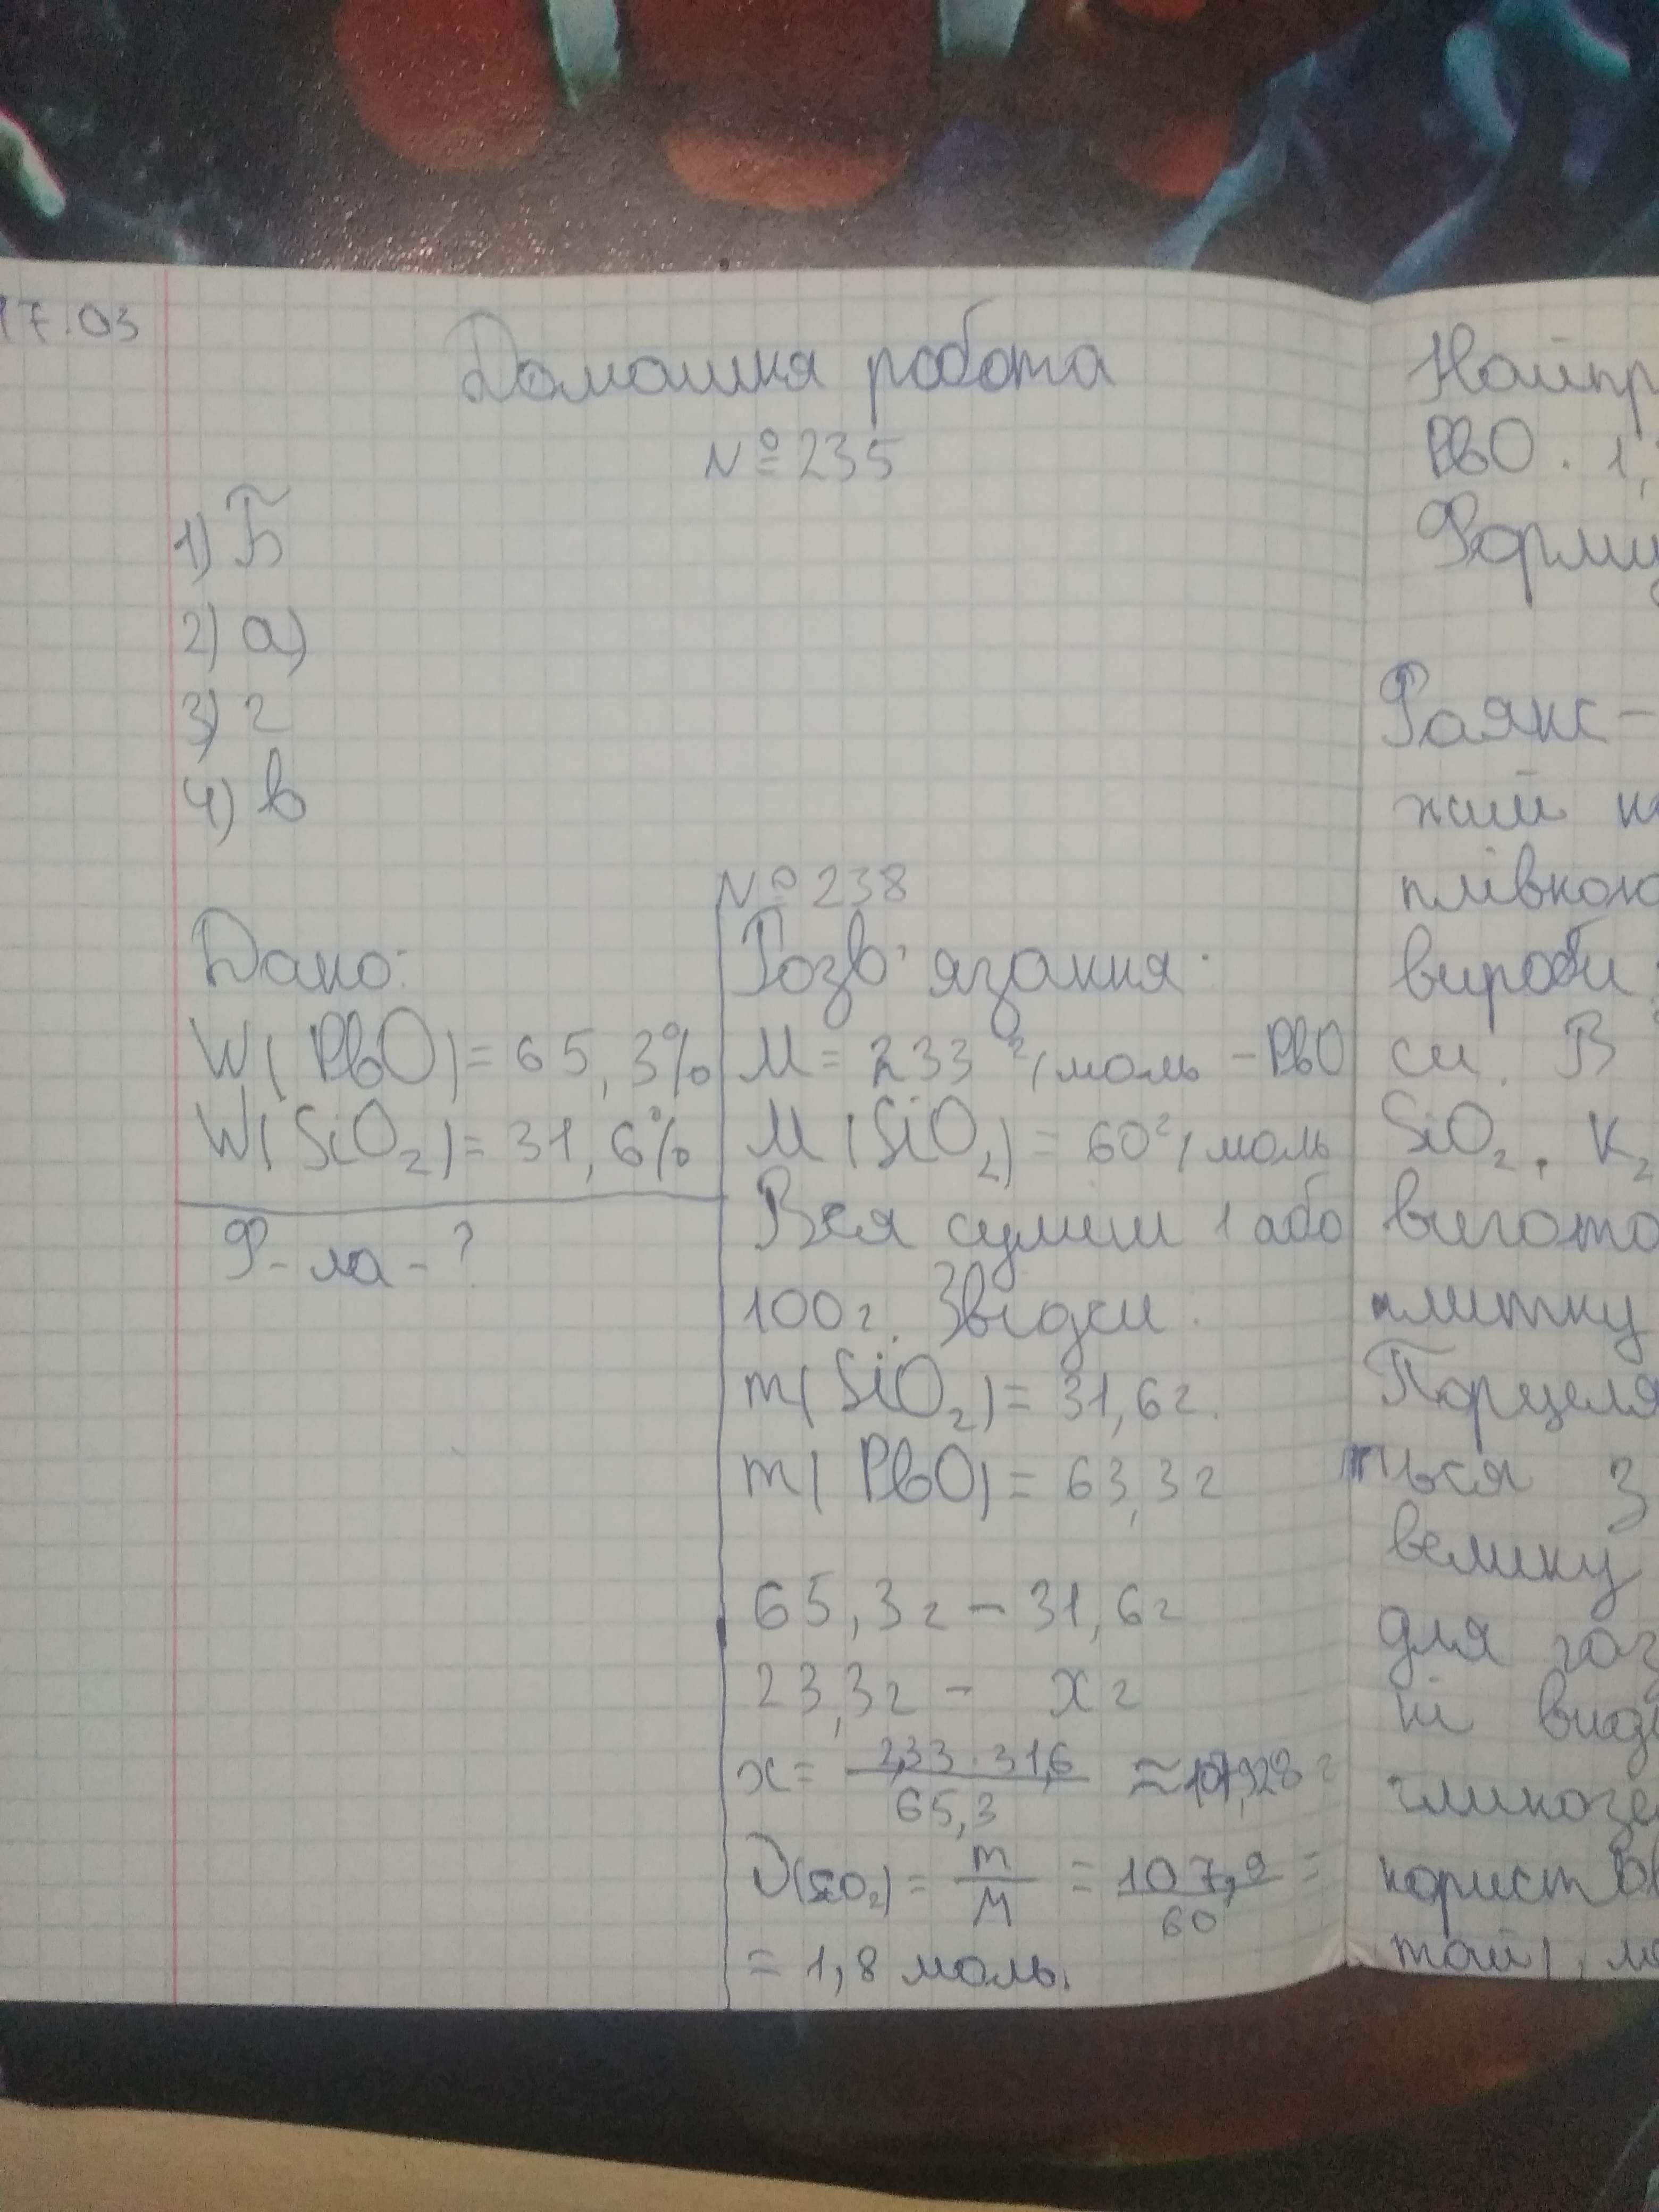 17.03
Домашня робота
№ 235
1) Б
2) а)
3) г
4) в
№ 238
Дано:
W(PbO)=65,3%
W(SiO₂)=31,6%
Ф-ла-?
Розв'язання:
M=233 г/моль-PbO
M(SiO₂)=60г/моль
Вся суміш 1 або
100г. Звідси:
m(SiO₂)=31,6г.
m(PbO)=63,3г
65,3г-31,6г
23,3г- хг
х= 233·31,6/65,3 ≈107,928 г
ν(SiO₂)= m/M = 107,9/60 =
= 1,8 моль.
Найпр
PbO · 1,
Форму
Фаянс-
жий
плівкою
вироби
си. В
SiO₂, K₂
вигото
плитку
Порцеля
ться з
велику
для газ
ні виді
глинозе
корист